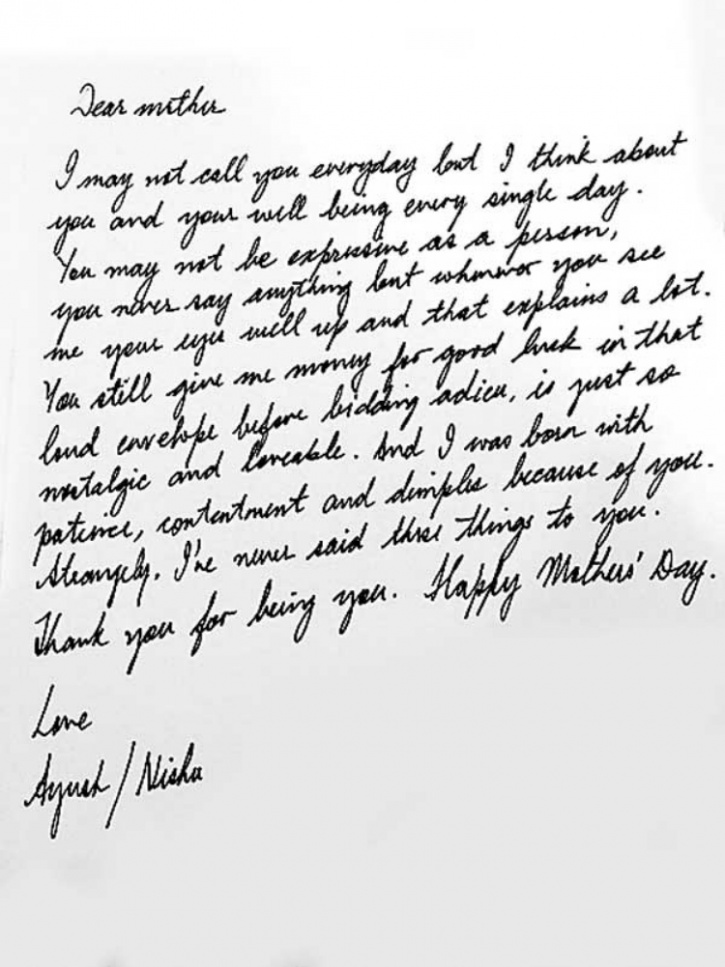 Dear mother
I may not call you everyday but I think about
you and your well being every single day.
You may not be expressive as a person,
you never say anything but whenever you see
me your eyes well up and that explains a lot.
You still give me money for good luck in that
loud envelope before bidding adieu, is just so
nostalgic and loveable. And I was born with
patience, contentment and dimples because of you.
Strangely. I've never said these things to you.
Thank you for being you. Happy Mothers' Day.
Love
Ayush / Nishu